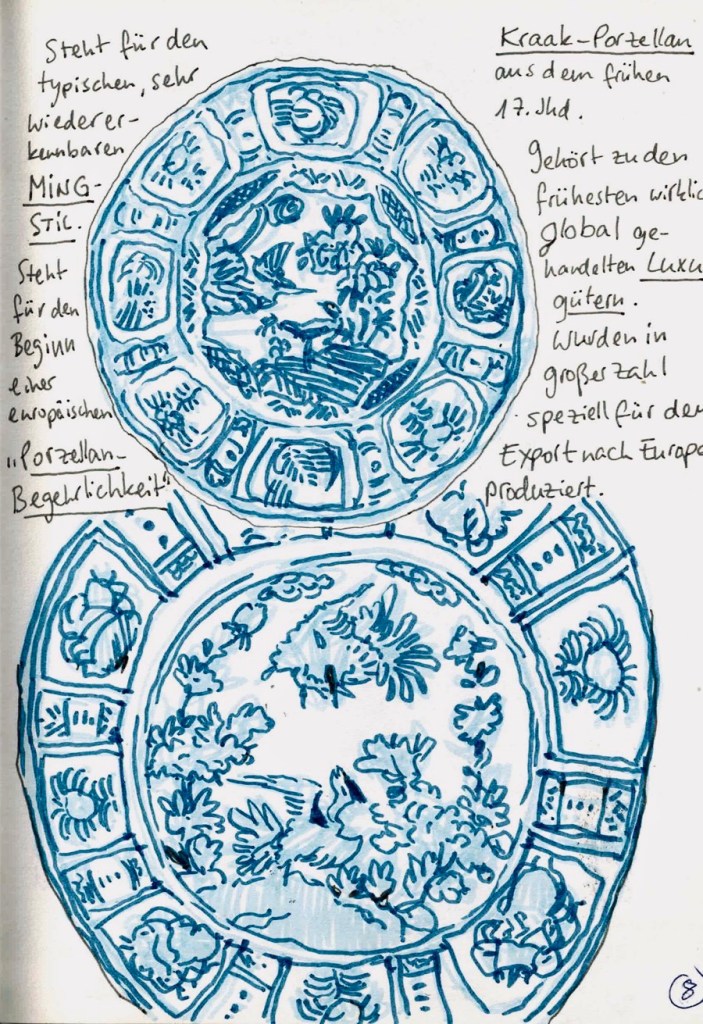 Steht für den
typischen, sehr
wiederer-
kennbaren
MING-
STIL.
Steht
für den
Beginn
einer
europäischen
„Porzellan-
Begehrlichkeit"
Kraak-Porzellan
aus dem frühen
17. Jhd.
Gehört zu den
frühesten wirklic
global ge-
handelten Luxu
gütern.
Wurden in
großer Zahl
speziell für den
Export nach Europa
produziert.
8